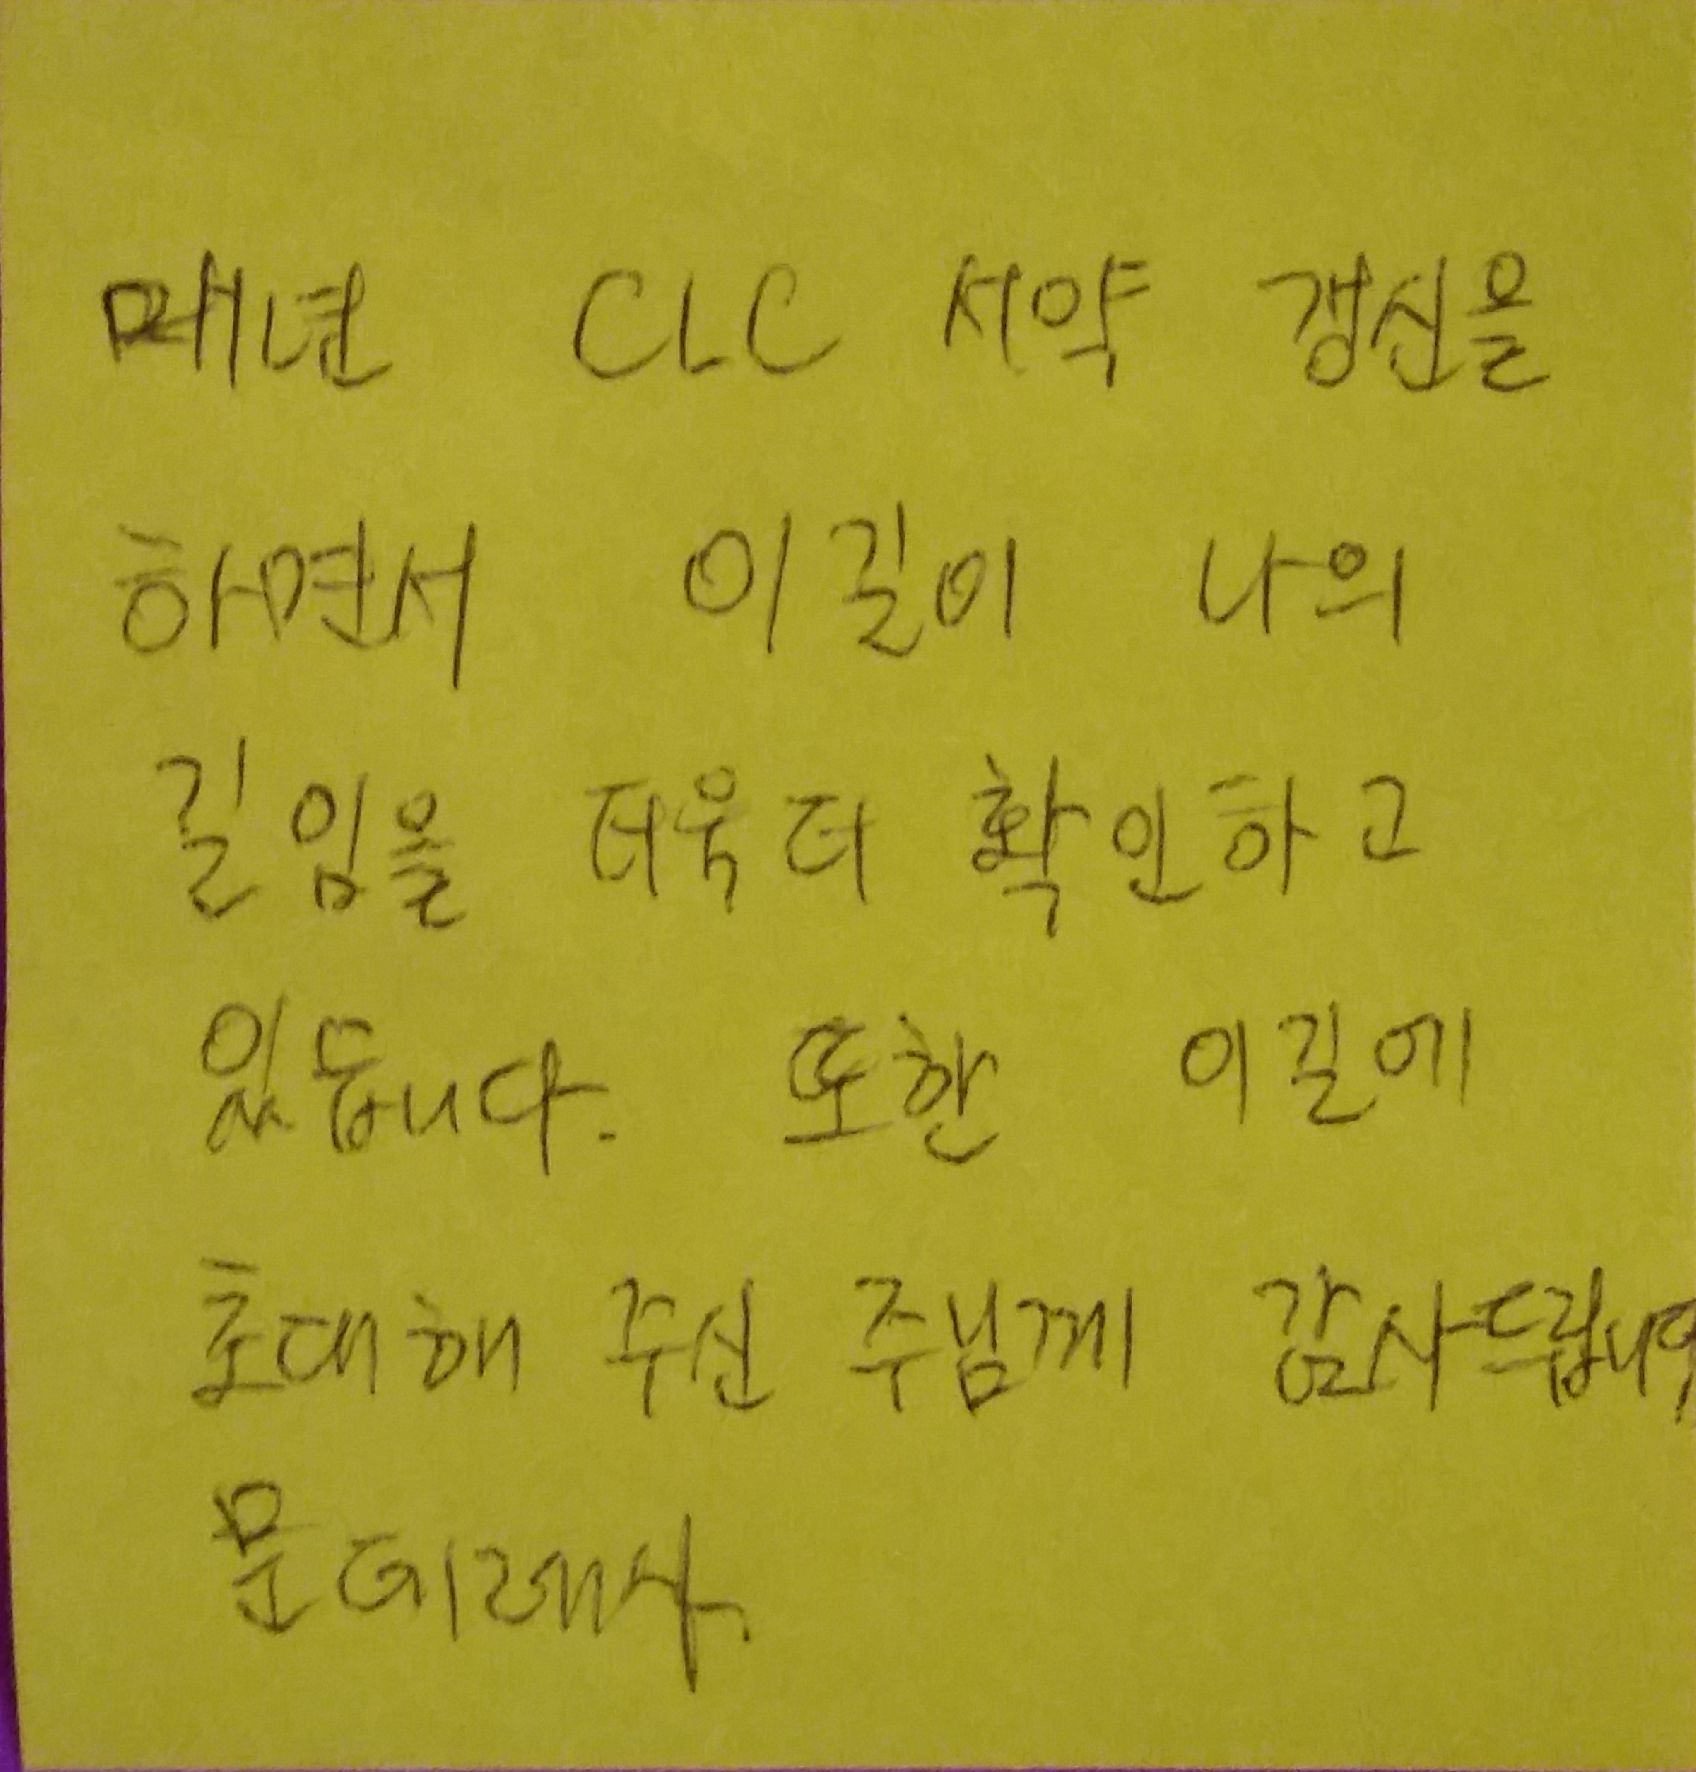 매년 CLC 서약 갱신을
하면서 이길이 나의
길임을 더욱더 확인하고
있습니다. 또한 이길에
초대해 주신 주님께 감사드립니다
문데레사.